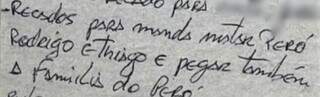 - Recados para manda matar Peró
Rodrigo E Thiago E pegar também
A família do Peró